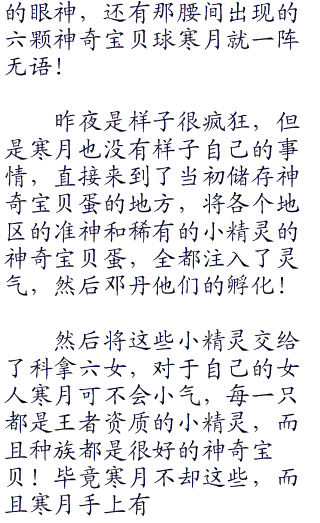 的眼神，还有那腰间出现的
六颗神奇宝贝球寒月就一阵
无语！
昨夜是样子很疯狂，但
是寒月也没有样子自己的事
情，直接来到了当初储存神
奇宝贝蛋的地方，将各个地
区的准神和稀有的小精灵的
神奇宝贝蛋，全都注入了灵
气，然后邓丹他们的孵化！
然后将这些小精灵交给
了科拿六女，对于自己的女
人寒月可不会小气，每一只
都是王者资质的小精灵，而
且种族都是很好的神奇宝
贝！毕竟寒月不却这些，而
且寒月手上有